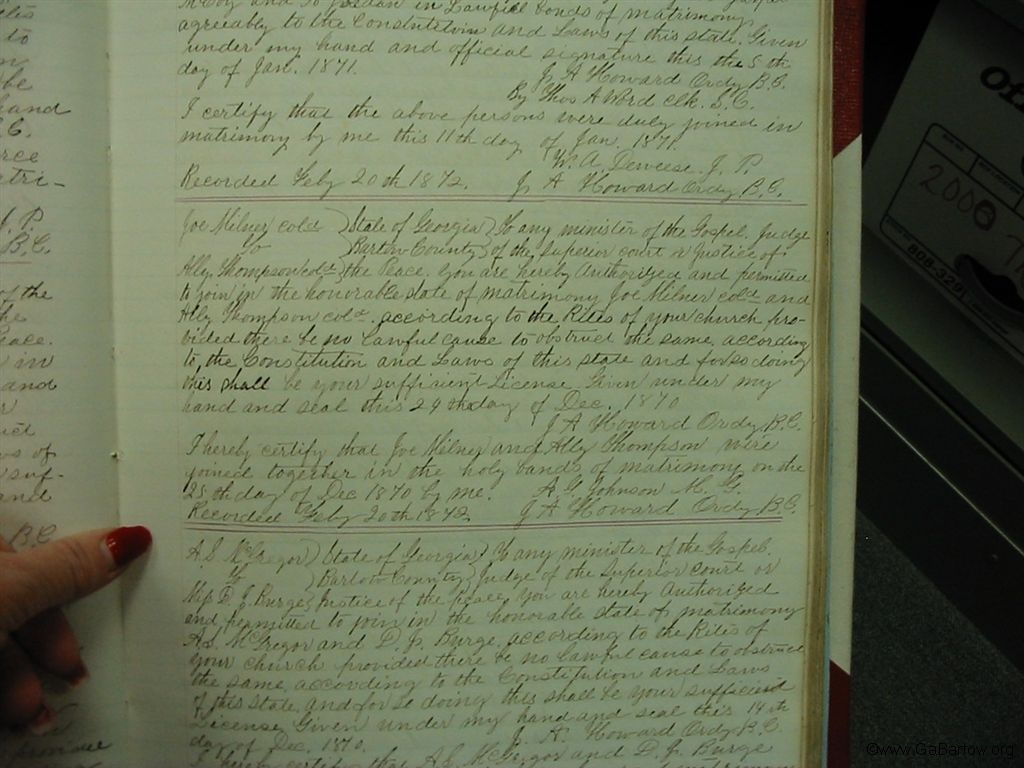 McCoy and Jo Jordan in Lawful bonds of matrimony
agreeably to the Constitution and Laws of this state. Given
under my hand and official signature this the 5th
day of Jan. 1871.
J. A Howard Ordy B.C.
By Thos A Word Clk. S. C.
I certify that the above persons were duly joined in
matrimony by me this 11th day of Jan. 1871.
W. A, Deweese J. P.
Recorded Feby 20th 1872. J A Howard Ordy B.C.
Joe Milner cold ) State of Georgia ) To any minister of the Gospel, Judge
to ) Bartow County ) of the Superior court or Justice of
Ally Thompson cold ) the Peace. You are hereby Authorized and permitted
to join in the honorable state of matrimony Joe Milner cold and
Ally Thompson cold according to the Rites of your church pro-
vided there be no lawful cause to obstruct the same, according
to, the Constitution and Laws of this state and for so doing
this shall be your sufficient License. Given under my
hand and seal this 24th day of Dec. 1870
J A Howard Ordy B.C.
I hereby certify that Joe Milner and Ally Thompson were
joined together in the holy bands of matrimony on the
25th day of Dec 1870 by me. A. G. Johnson M. G.
Recorded Feby 20th 1872 J A Howard Ordy B.C.
A.S. McGregor ) State of Georgia ) To any minister of the Gospel.
To ) Bartow County ) Judge of the Superior court or
Miss D. J. Burge ) Justice of the peace, You are hereby Authorized
and permitted to join in the honorable state of matrimony
A.S. McGregor and D. J. Burge, according to the Rites of
your church provided there be no lawful cause to obstruct
the same, according to the Constitution and Laws
of this state, and for so doing this shall be your sufficient
License, Given under my hand and seal this 14th
day of Dec. 1870. J. A. Howard Ordy B.C.
I hereby certify that A.S. McGregor and D. J. Burge
to
be
hand
B.C.
of the
the
Peace.
in
and
suf-
and
B.C.
Off
2000
808-329
©www.GaBartow.org